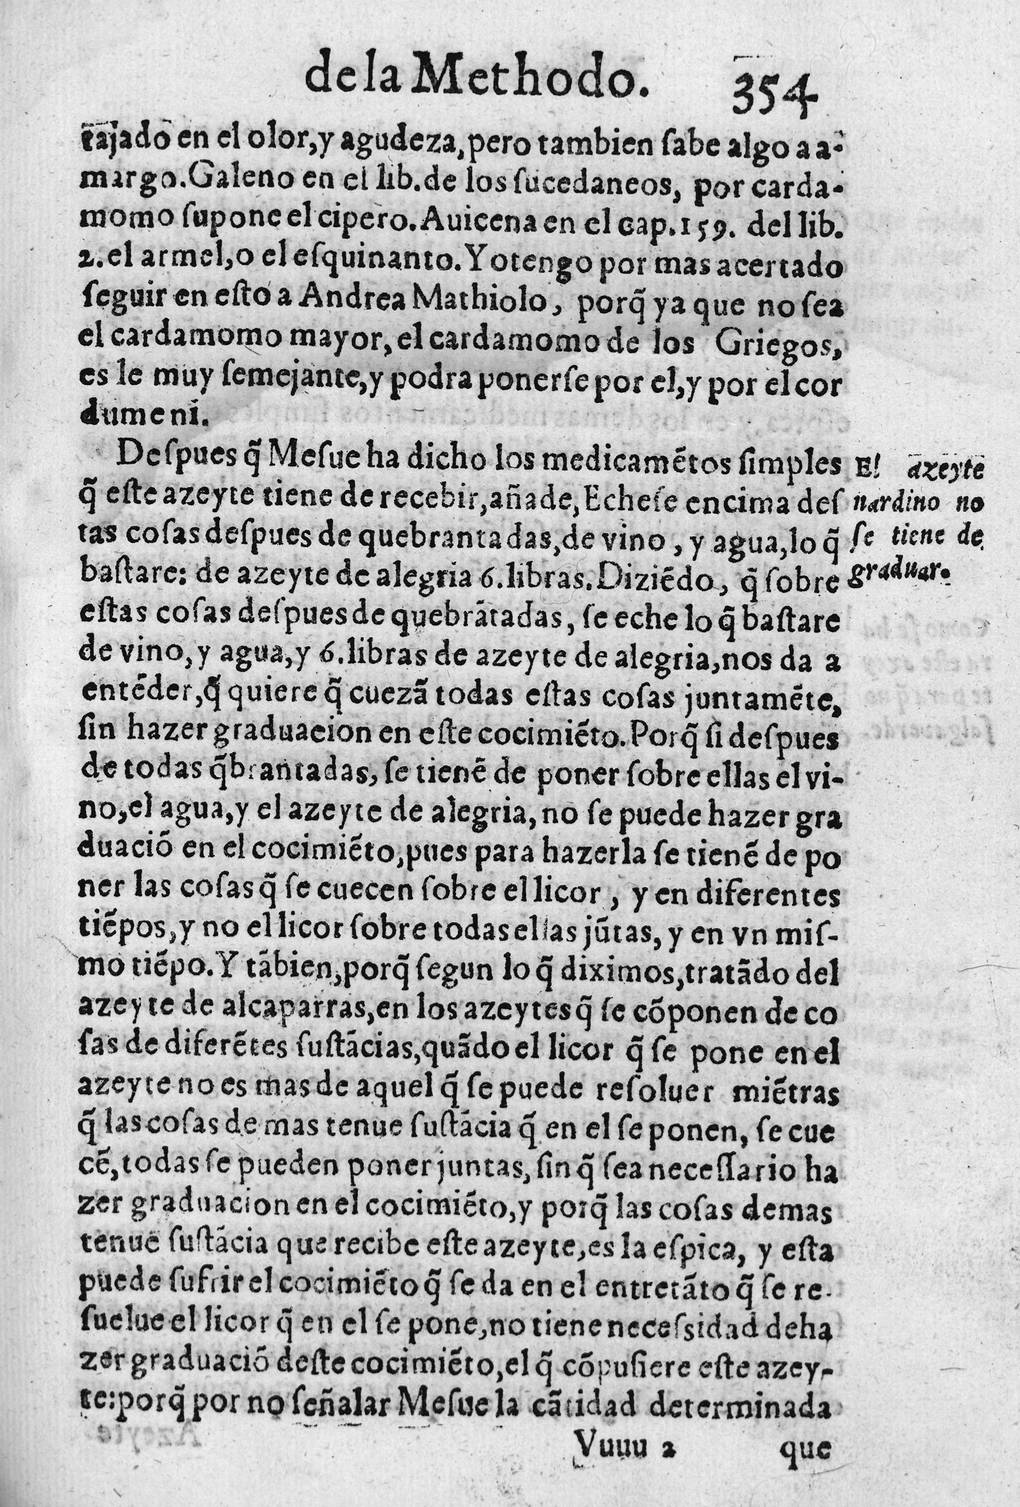 de la Methodo. 354
tajado en el olor, y agudeza, pero tambien sabe algo a a-
margo. Galeno en el lib. de los sucedaneos, por carda-
momo supone el cipero. Auicena en el cap. 159. del lib.
2. el armel, o el esquinanto. Yo tengo por mas acertado
seguir en esto a Andrea Mathiolo, porq̃ ya que no sea
el cardamomo mayor, el cardamomo de los Griegos,
es le muy semejante, y podra ponerse por el, y por el cor
dumeni.
Despues q̃ Mesue ha dicho los medicamẽtos simples
q̃ este azeyte tiene de recebir, añade, Echese encima des
tas cosas despues de quebrantadas, de vino, y agua, lo q̃
bastare: de azeyte de alegria 6. libras. Diziẽdo, q̃ sobre
estas cosas despues de quebrãtadas, se eche lo q̃ bastare
de vino, y agua, y 6. libras de azeyte de alegria, nos da a
entẽder, q̃ quiere q̃ cuezã todas estas cosas juntamẽte,
sin hazer graduacion en este cocimiẽto. Porq̃ si despues
de todas q̃brantadas, se tienẽ de poner sobre ellas el vi-
no, el agua, y el azeyte de alegria, no se puede hazer gra
duaciõ en el cocimiẽto, pues para hazerla se tienẽ de po
ner las cosas q̃ se cuecen sobre el licor, y en diferentes
tiẽpos, y no el licor sobre todas ellas jũtas, y en vn mis-
mo tiẽpo. Y tãbien, porq̃ segun lo q̃ diximos, tratãdo del
azeyte de alcaparras, en los azeytes q̃ se cõponen de co
sas de diferẽtes sustãcias, quãdo el licor q̃ se pone en el
azeyte no es mas de aquel q̃ se puede resoluer miẽtras
q̃ las cosas de mas tenue sustãcia q̃ en el se ponen, se cue
cẽ, todas se pueden poner juntas, sin q̃ sea necessario ha
zer graduacion en el cocimiẽto, y porq̃ las cosas demas
tenue sustãcia que recibe este azeyte, es la espica, y esta
puede sufrir el cocimiẽto q̃ se da en el entretãto q̃ se re-
suelue el licor q̃ en el se pone, no tiene necessidad de ha
zer graduaciõ deste cocimiẽto, el q̃ cõpusiere este azey-
te: porq̃ por no señalar Mesue la cãtidad determinada
Vuuu 2 que
El azeyte
nardino no
se tiene de
graduar.